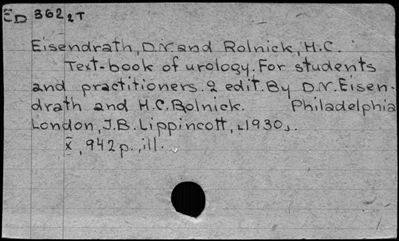 ED 362 2T
Eisendrath, D.N. and Rolnick, H.C.
Text-book of urology. For students
and practitioners. 2 edit. By D.N. Eisen-
drath and H.C. Rolnick. Philadelphia
London, J.B. Lippincott, ⌞1930⌟.
x, 942 p., ill.